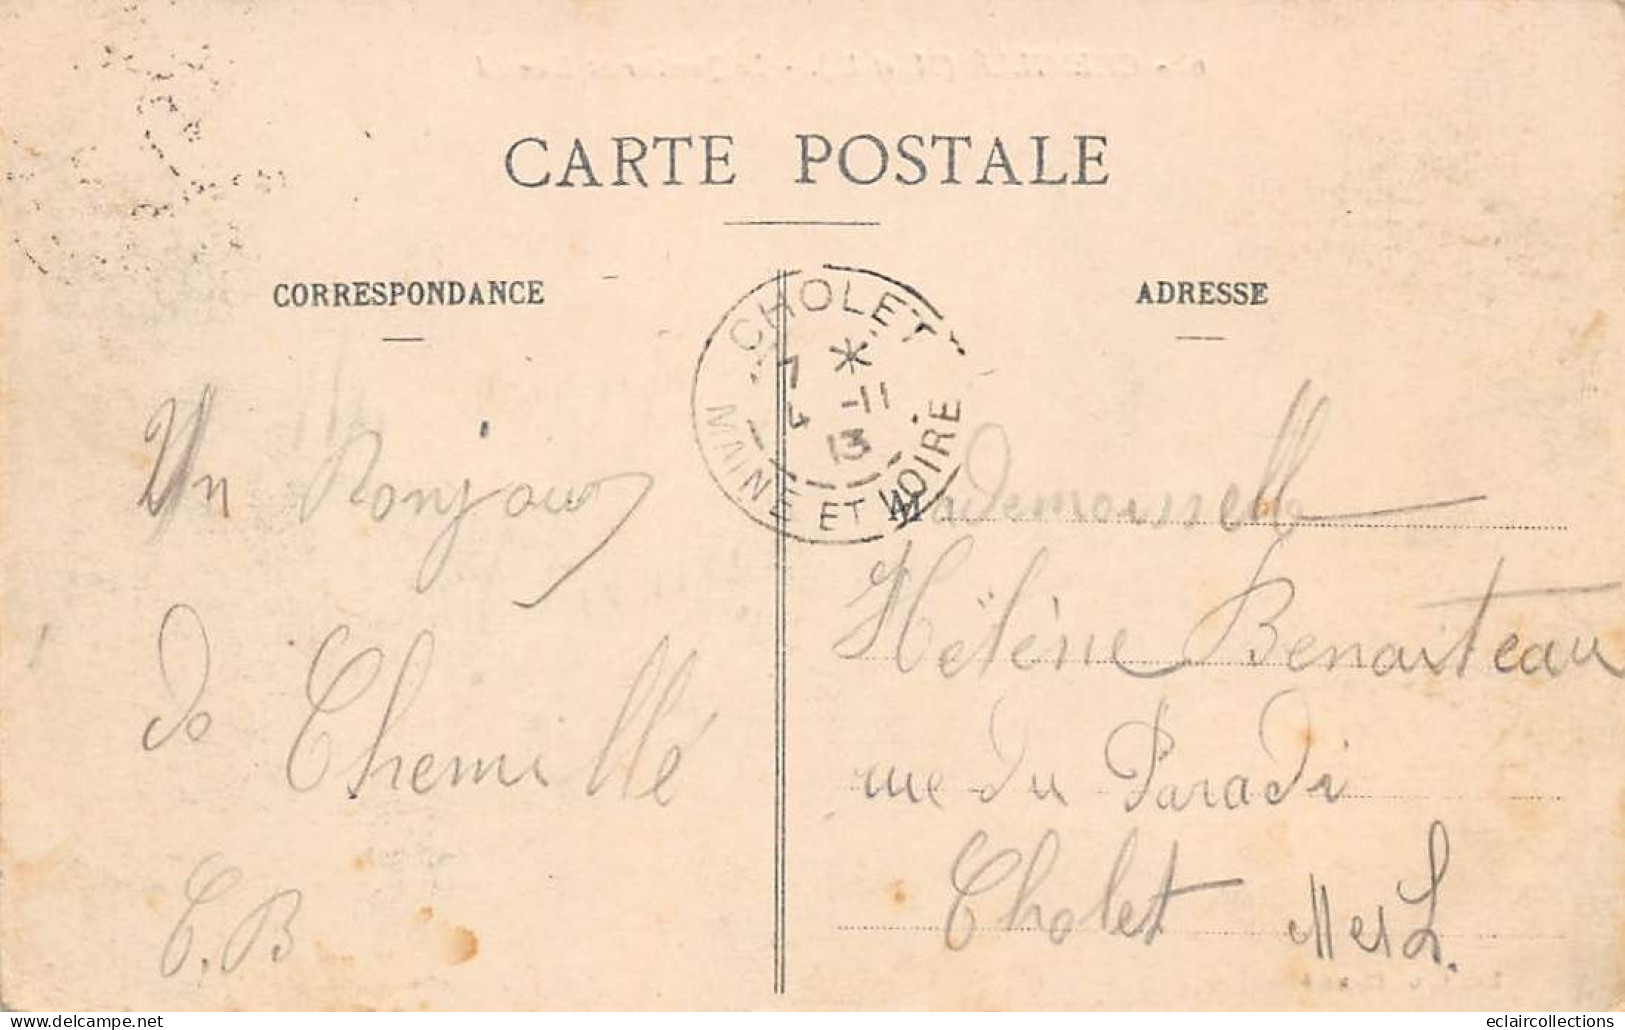 CARTE POSTALE
CORRESPONDANCE
ADRESSE
CHOLET
7 *
4 -11
13
MAINE ET LOIRE
Un Bonjour
de Chemillé
C.B
Mademoiselle
Hélène Benaiteau
rue du Paradi
Cholet M et L.
delcampe.net
eclaircollections